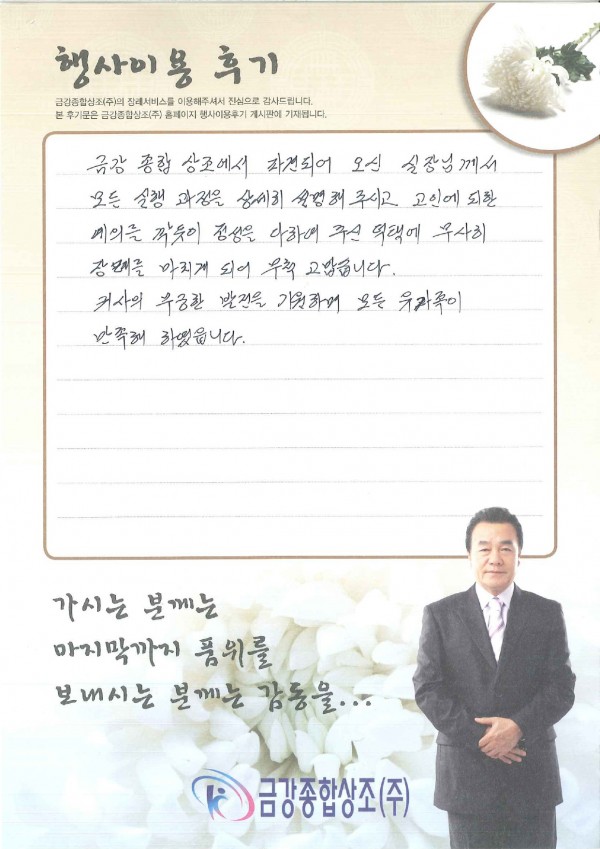 행사이용 후기
금강종합상조(주)의 장례서비스를 이용해주셔서 진심으로 감사드립니다.
본 후기문은 금강종합상조(주) 홈페이지 행사이용후기 게시판에 기재됩니다.
금강 종합 상조에서 파견되어 오신 실장님께서
모든 실행 과정을 상세히 설명해 주시고 고인에 대한
예의를 깍듯이 정성을 다하여 주신 덕택에 무사히
장례를 마치게 되어 무척 고맙습니다.
귀사의 무궁한 발전을 기원하며 모든 유가족이
만족해 하였읍니다.
가시는 분께는
마지막까지 품위를
보내시는 분께는 감동을...
금강종합상조(주)